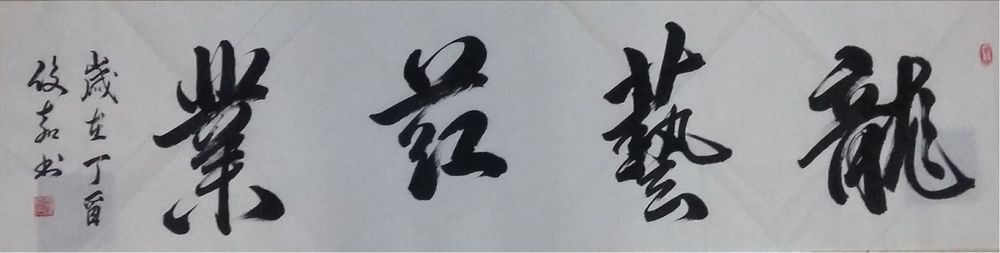 龍藝業
歲在丁酉
俊嘉书